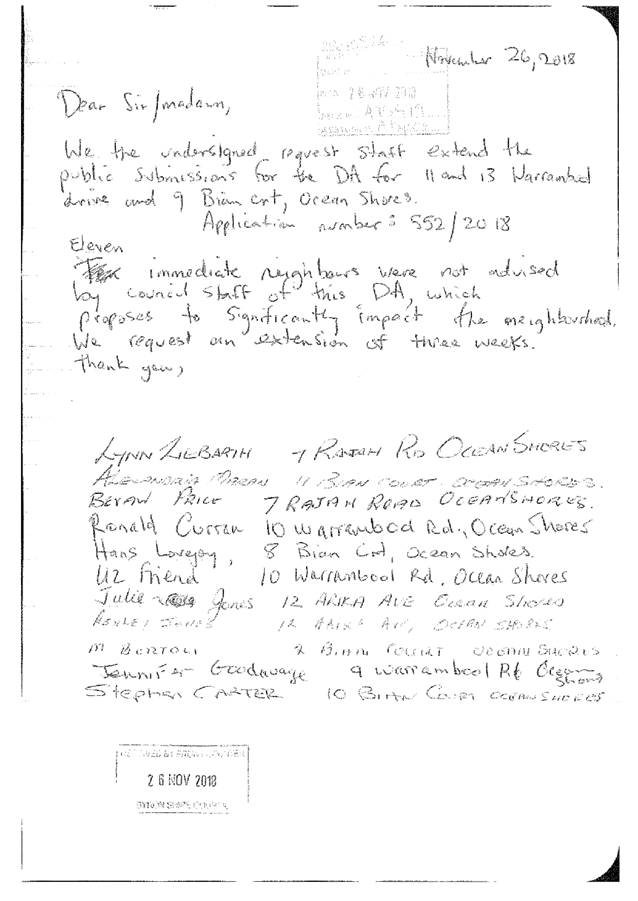 November 26, 2018
28 NOV 2018
Dear Sir/madam,
We the undersigned request staff extend the
public submissions for the DA for 11 and 13 Warrambool
drive and 9 Bian Crt, Ocean Shores.
Application number: 552/2018
Eleven
immediate neighbours were not advised
by council staff of this DA, which
proposes to significantly impact the neighbourhood.
We request an extension of three weeks.
Thank you,
LYNN ZIEBARTH 7 RAJAH RD OCEAN SHORES
11 BIAN COURT OCEAN SHORES.
BEVAN PRICE 7 RAJAH ROAD OCEAN SHORES.
Ronald Curran 10 Warrambool Rd., Ocean Shores
Hans Lovejoy, 8 Bian Crt, Ocean Shores.
Liz Friend 10 Warrambool Rd, Ocean Shores
Julie Jones 12 ARIKA AVE OCEAN SHORES
ASHLEY JONES 12 ARIKA AV, OCEAN SHORES
M BERTOLI 2 BIAN COURT OCEAN SHORES
Jennifer Goodavage 9 Warrambool Rd Ocean Shores
Stephen CARTER 10 BIAN COURT OCEAN SHORES
RECEIVED BY FRONT COUNTER
26 NOV 2018
BYRON SHIRE COUNCIL